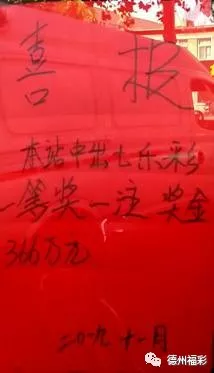 喜报
本站中出七乐彩
一等奖一注 奖金
366万元
二〇一九 十一月
德州福彩